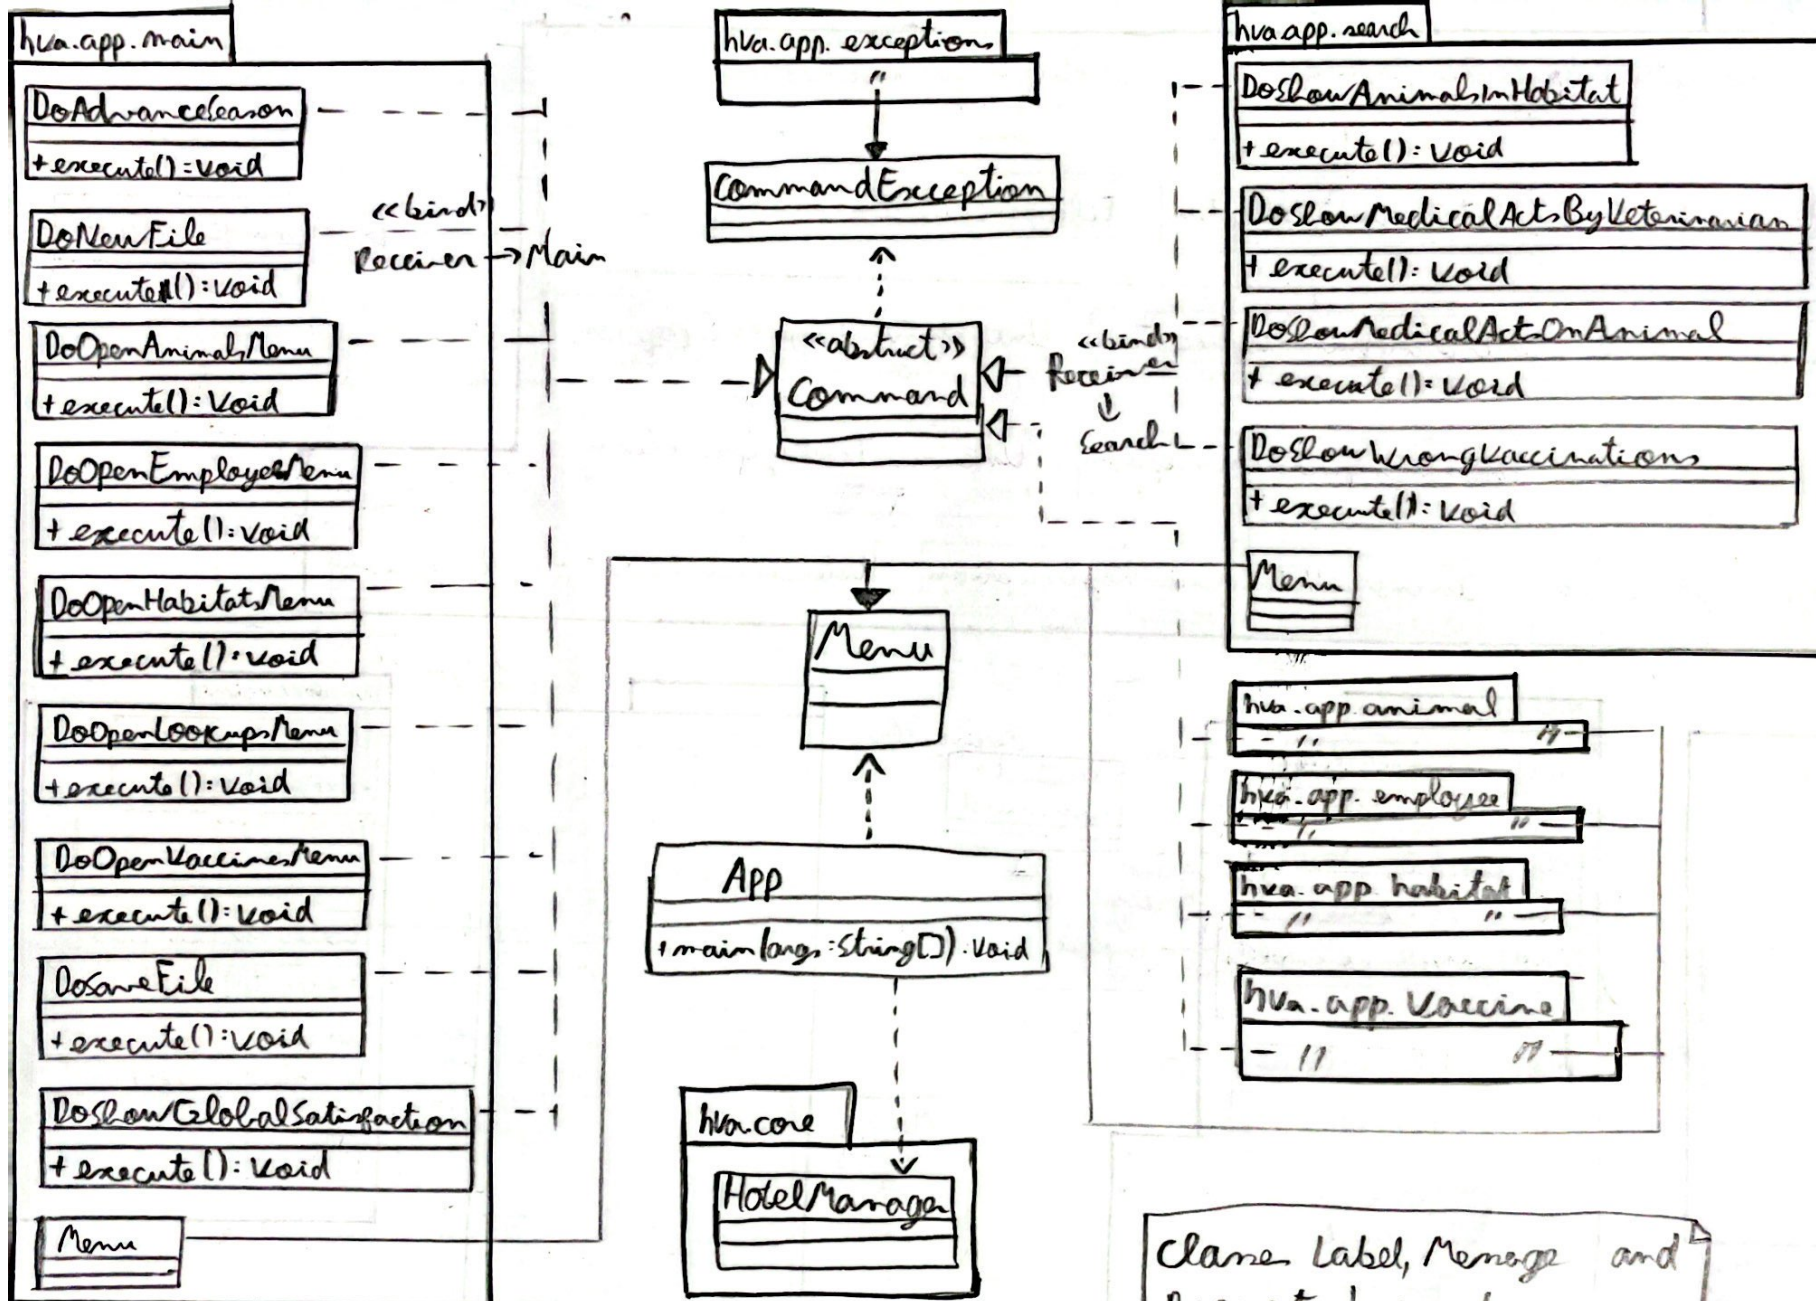 hva.app.main
DoAdvanceSeason
+ execute(): void
DoNewFile
+ execute(): void
DoOpenAnimalsMenu
+ execute(): void
DoOpenEmployeeMenu
+ execute(): void
DoOpenHabitatsMenu
+ execute(): void
DoOpenLookupsMenu
+ execute(): void
DoOpenVaccinesMenu
+ execute(): void
DoSaveFile
+ execute(): void
DoShowGlobalSatisfaction
+ execute(): void
Menu
<<bind>>
Receiver → Main
hva.app.exceptions
"
CommandException
<<abstract>>
Command
Menu
App
+ main(args: String[]): void
hva.core
HotelManager
<<bind>>
Receiver
↓
Search
hva.app.search
DoShowAnimalsInHabitat
+ execute(): void
DoShowMedicalActsByVeterinarian
+ execute(): void
DoShowMedicalActsOnAnimal
+ execute(): void
DoShowWrongVaccinations
+ execute(): void
Menu
hva.app.animal
" "
hva.app.employee
" "
hva.app.habitat
" "
hva.app.vaccine
" "
Classes Label, Message and